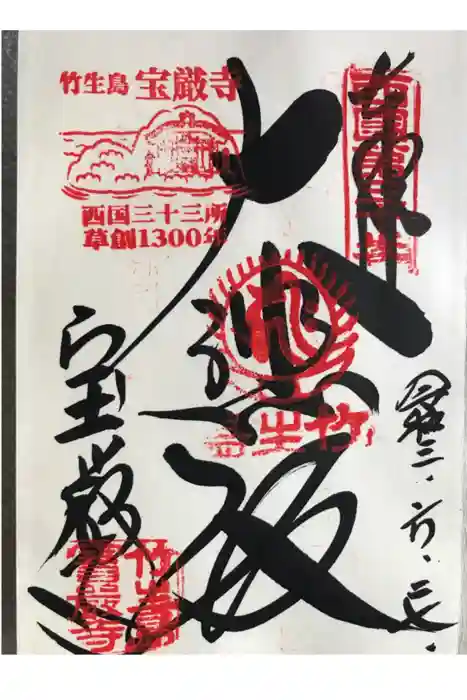 奉拝
西国第三十番
竹生島 宝厳寺
西国三十三所
草創1300年
大悲殿
竹生島
宝厳寺
竹生島
寶厳寺